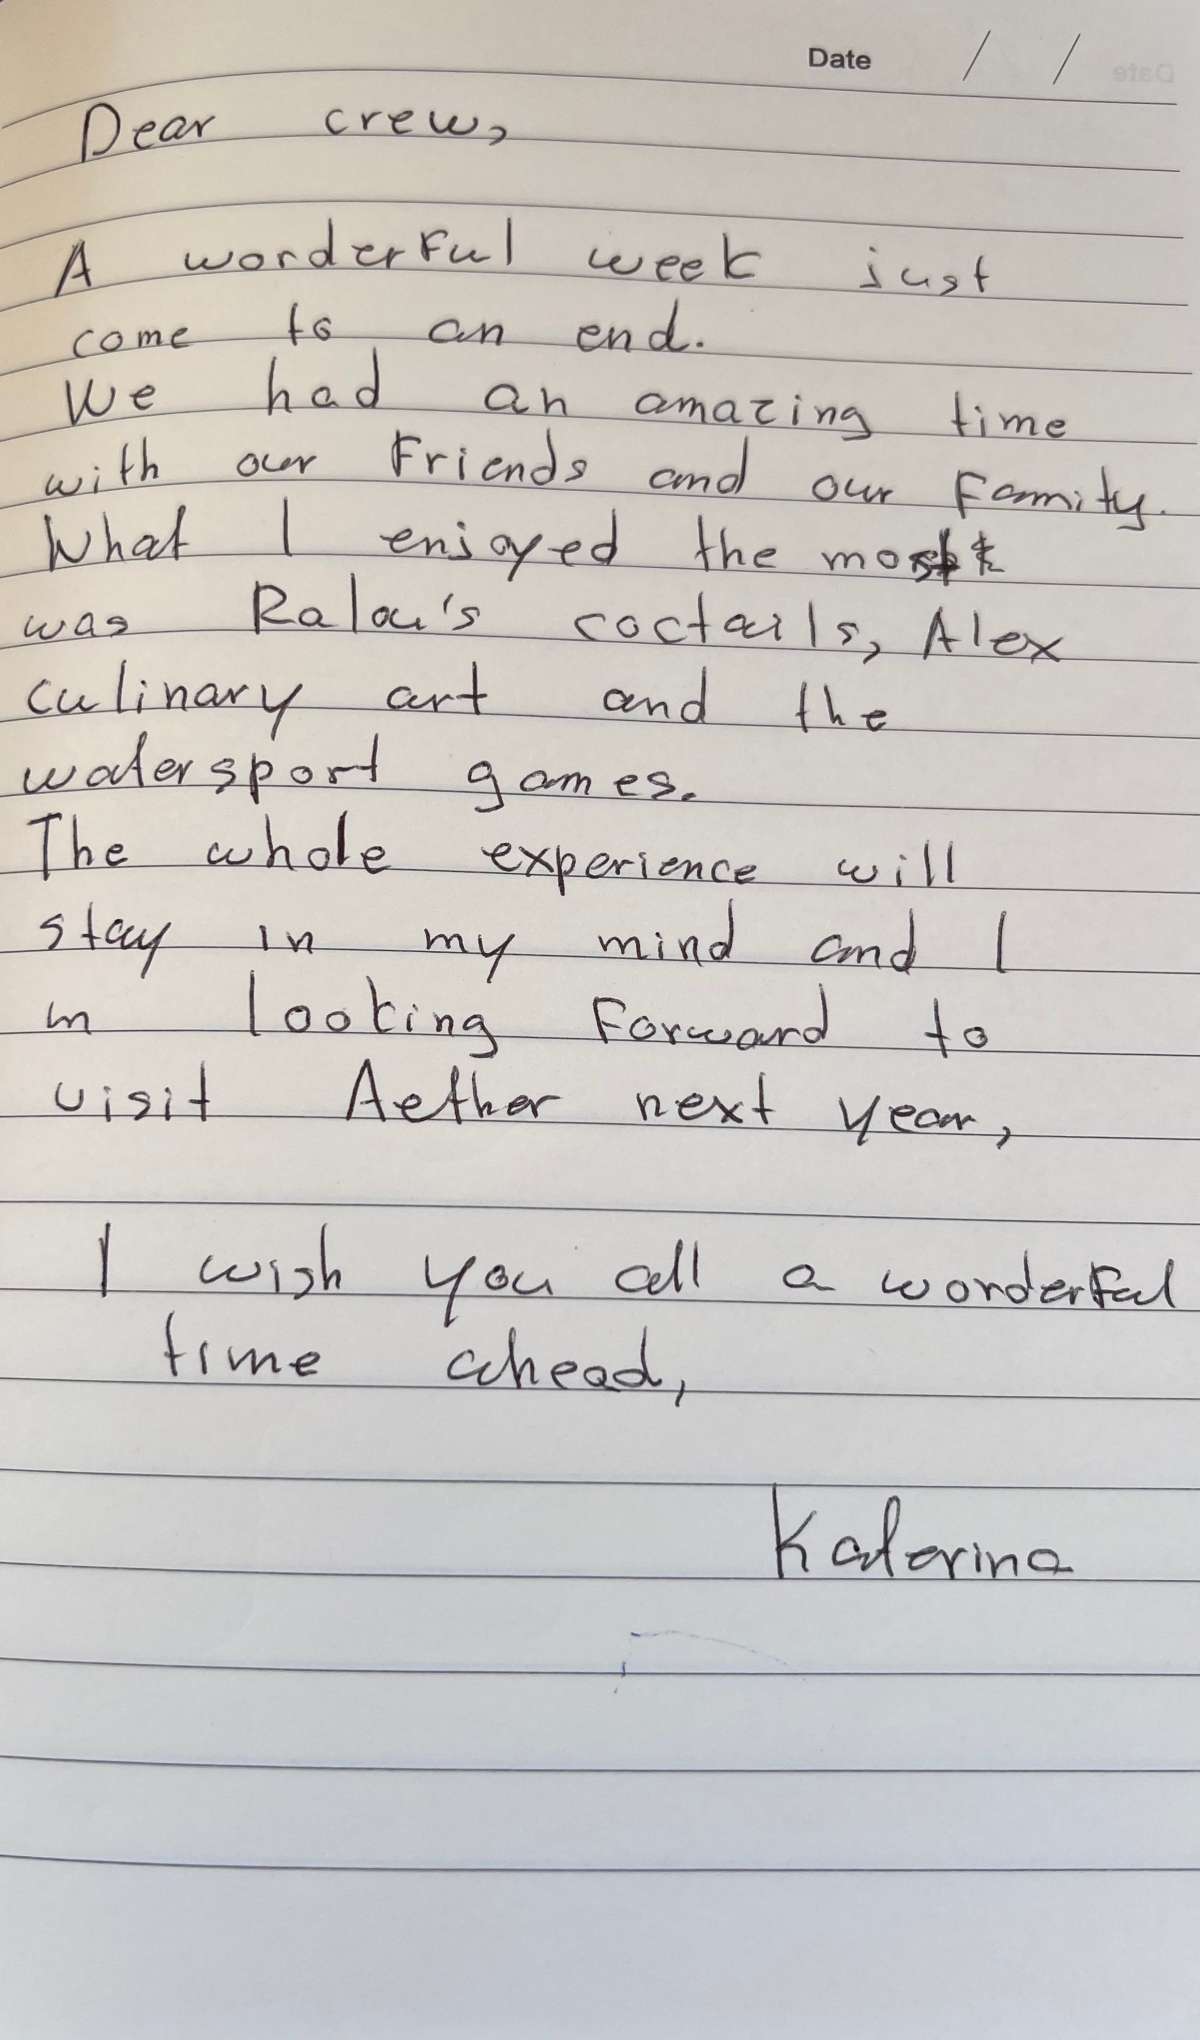 Date / /
Dear crew,
A worderful week just
come to an end.
We had an amazing time
with our friends and our Famity.
What I enjoyed the most
was Ralou's coctails, Alex
culinary art and the
watersport games.
The whole experience will
stay in my mind and I
m looking forward to
visit Aether next year,
I wish you all a worderful
time ahead,
Katerina